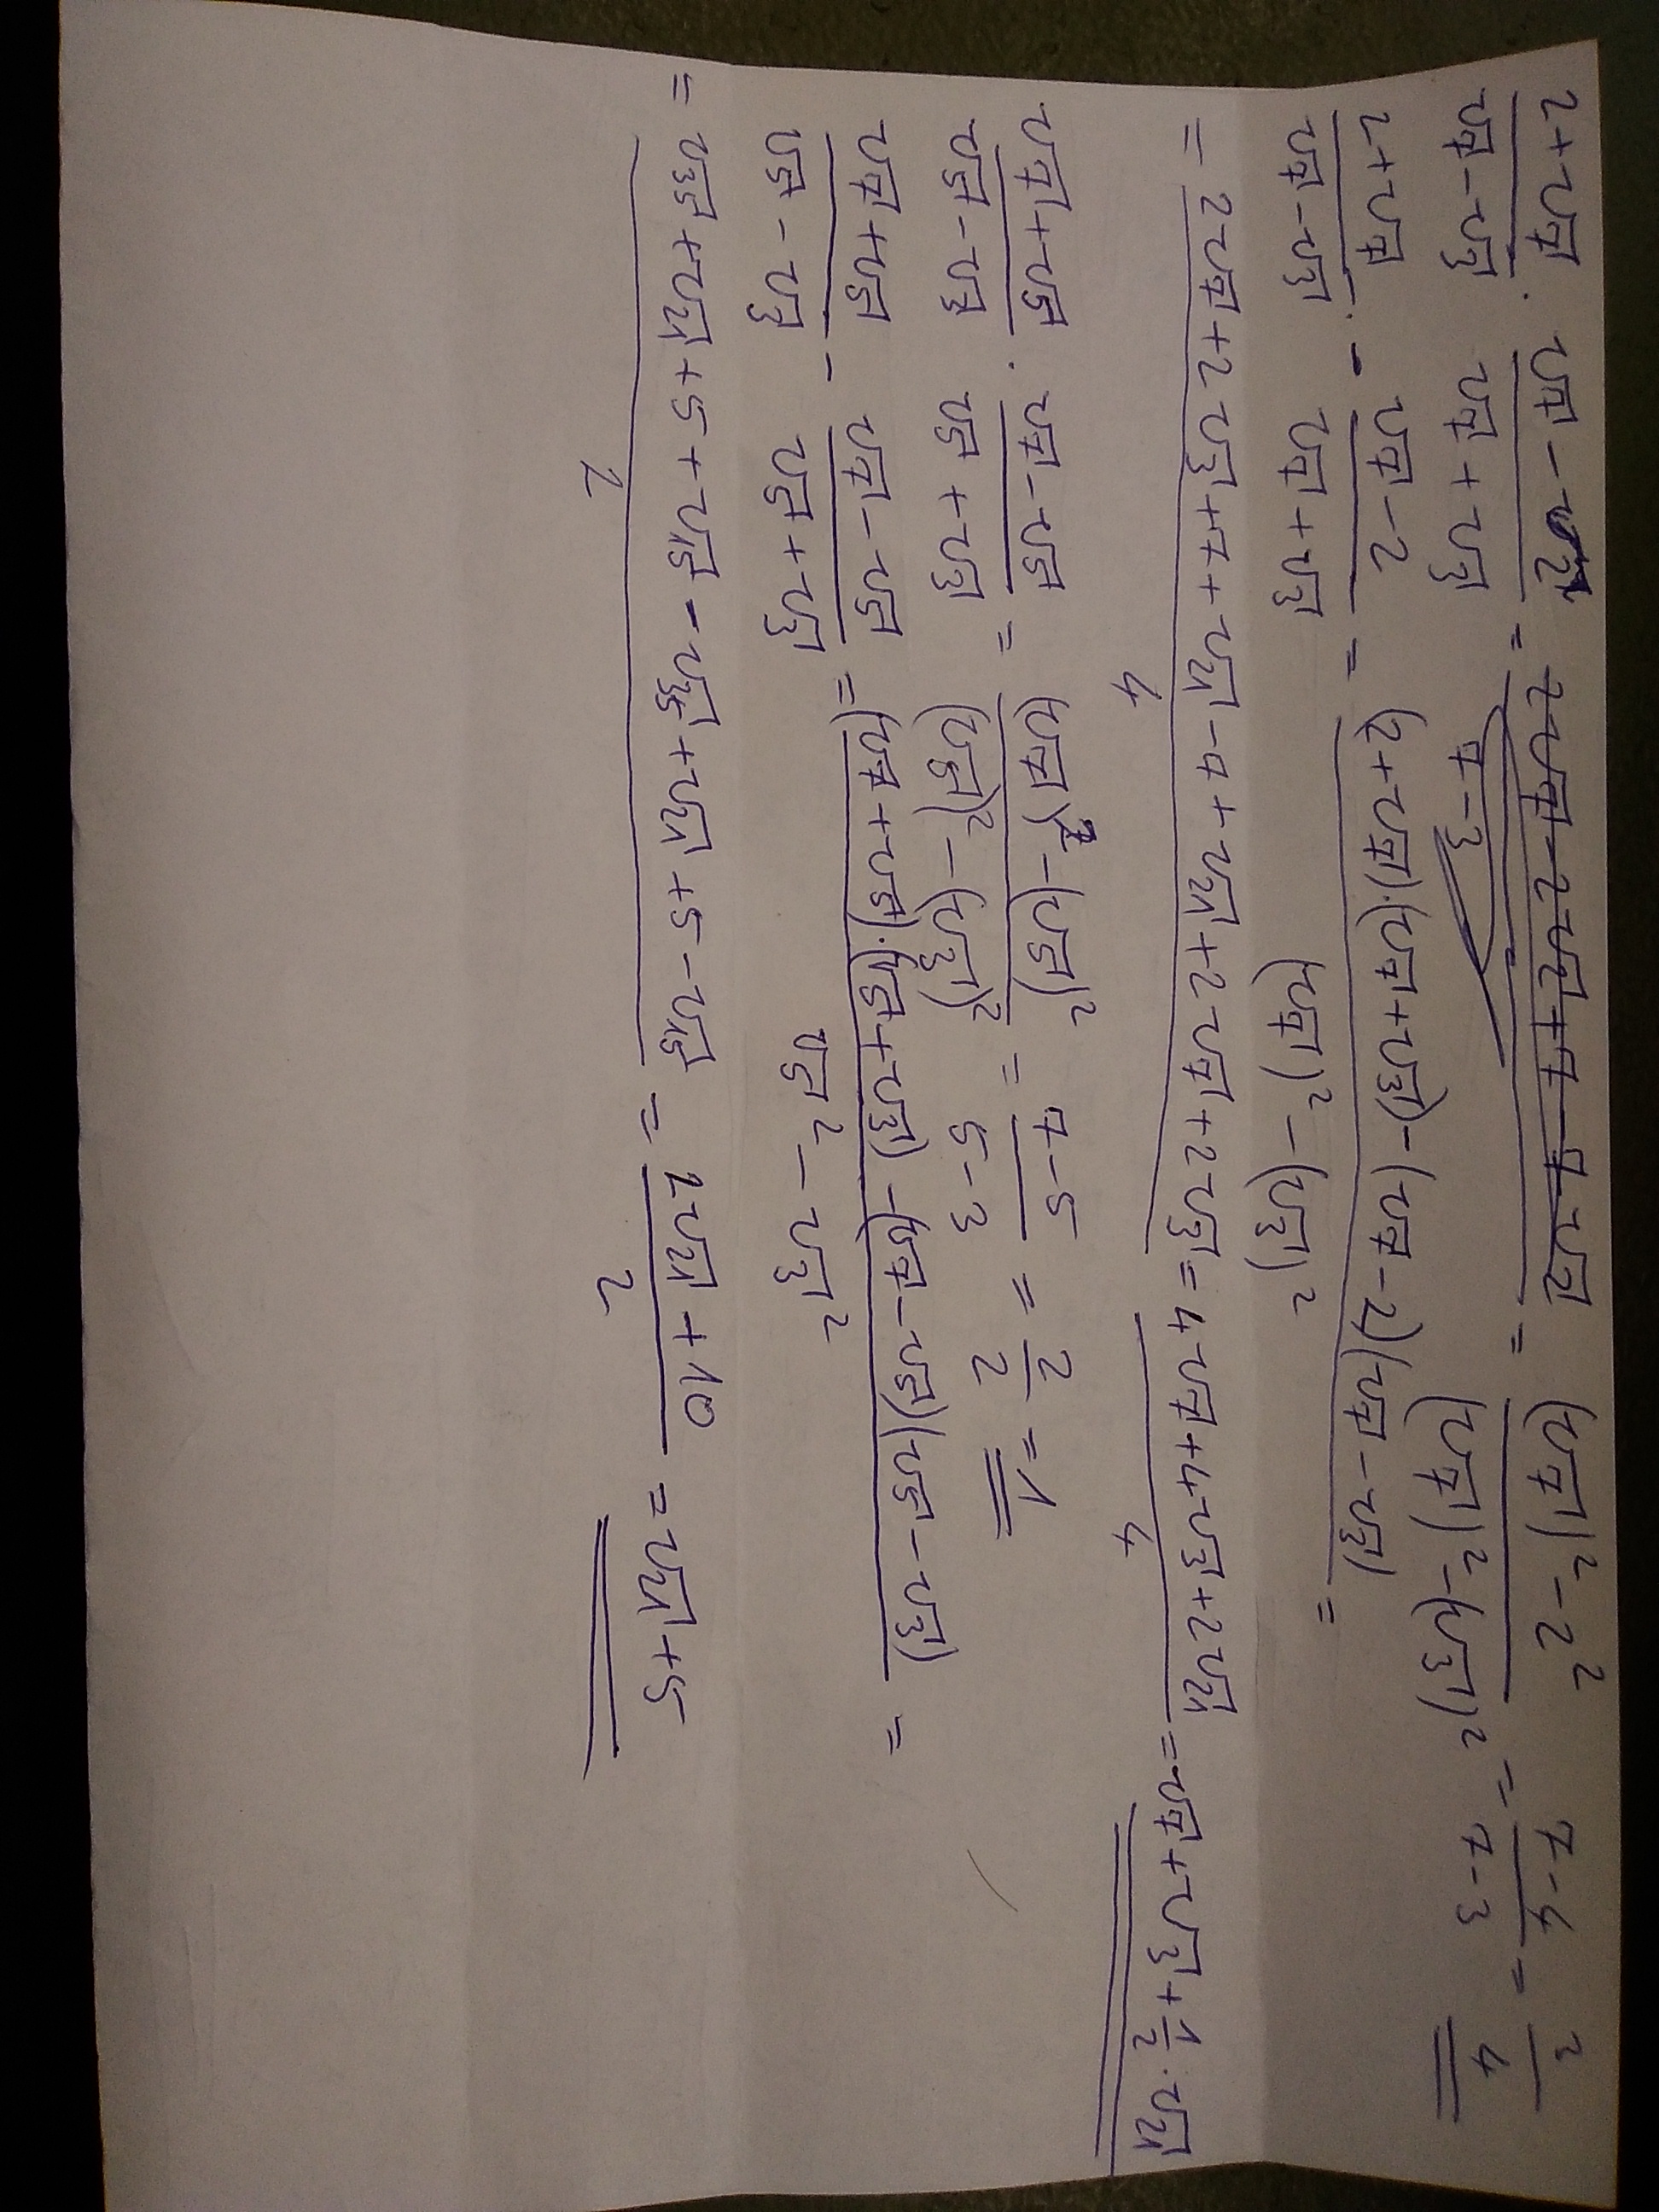 2+√7 / √7-√3 · √7-√2 / √7+√3 = 2√7-2√2+7-7√2 / 7-3 = (√7)²-2² / (√7)²-(√3)² = 7-4 / 7-3 = 3/4
2+√7 / √7-√3 - √7-2 / √7+√3 = (2+√7)·(√7+√3)-(√7-2)(√7-√3) / (√7)²-(√3)² =
= 2√7+2√3+7+√21-7+√21+2√7+2√3 / 4 = 4√7+4√3+2√21 / 4 = √7+√3+1/2·√21
√7+√5 / √5-√3 · √7-√5 / √5+√3 = (√7)²-(√5)² / (√5)²-(√3)² = 7-5 / 5-3 = 2/2 = 1
√7+√5 / √5-√3 - √7-√5 / √5+√3 = (√7+√5)·(√5+√3)-(√7-√5)(√5-√3) / √5²-√3² =
= √35+√21+5+√15-√35+√21+5-√15 / 2 = 2√21+10 / 2 = √21+5